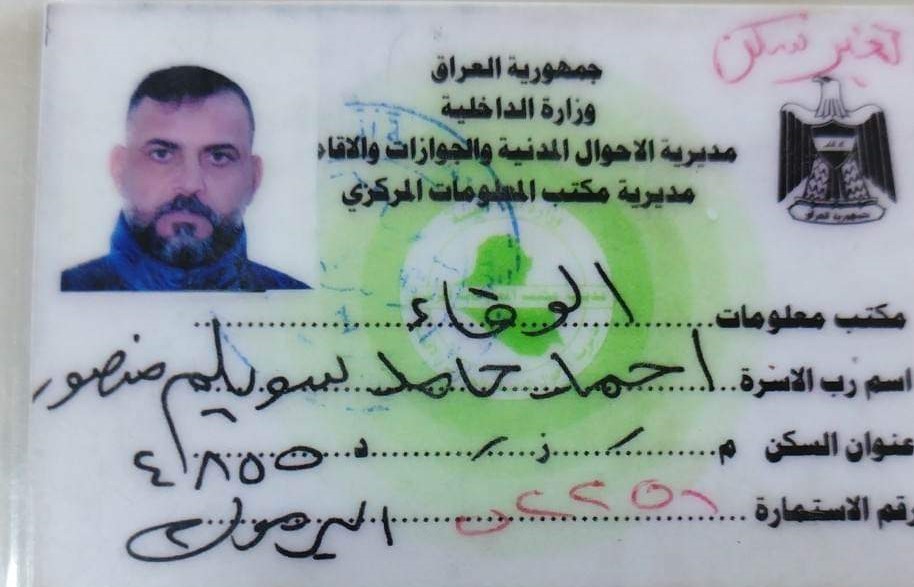 تغير سكن
جمهورية العراق
وزارة الداخلية
مديرية الاحوال المدنية والجوازات والاقام
مديرية مكتب المعلومات المركزي
جمهورية العراق
مكتب معلومات الوفاء
اسم رب الاسرة احمد حامد سويلم منصور
عنوان السكن م / ز / د ٤/٨٥٥
رقم الاستمارة
اليرموك